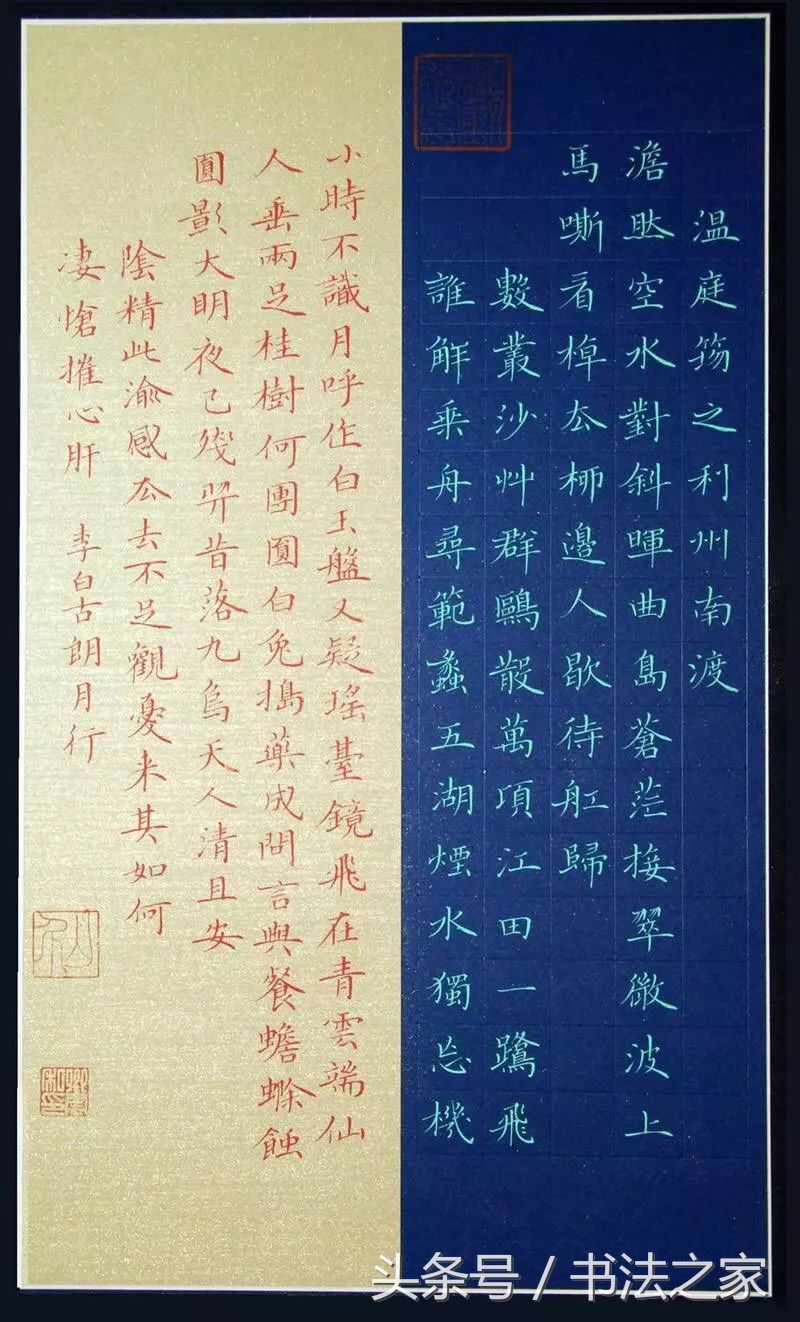 温庭筠之利州南渡
澹然空水對斜暉曲島蒼茫接翠微波上
馬嘶看棹去柳邊人歇待舡歸
數叢沙艸群鷗散萬項江田一鷺飛
誰解乘舟尋範蠡五湖煙水獨忘機
小時不識月呼作白玉盤又疑瑤臺鏡飛在青雲端仙
人垂兩足桂樹何團圓白兔搗藥成問言與餐蟾蜍蝕
圓影大明夜已殘羿昔落九烏天人清且安
陰精此淪惑去去不足觀憂来其如何
凄愴摧心肝 李白古朗月行
头条号 / 书法之家